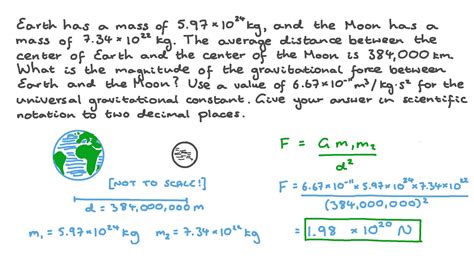 Earth has a mass of 5.97 × 10²⁴ kg, and the Moon has a
mass of 7.34 × 10²² kg. The average distance between the
center of Earth and the center of the Moon is 384,000 km.
What is the magnitude of the gravitational force between
Earth and the Moon? Use a value of 6.67×10⁻¹¹ m³/kg·s² for
the universal gravitational constant. Give your answer in scientific
notation to two decimal places.
F = Gm₁m₂/d²
[NOT TO SCALE!]
d = 384,000,000 m
m₁ = 5.97×10²⁴ kg m₂ = 7.34×10²² kg
F = 6.67×10⁻¹¹ × 5.97×10²⁴ × 7.34×10²²/(384,000,000)²
= 1.98 × 10²⁰ N